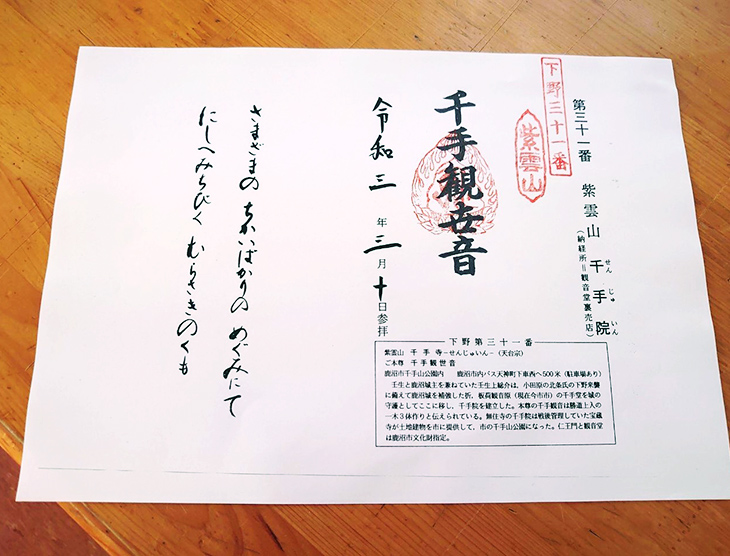 下野三十一番
紫雲山
第三十一番 紫雲山 千手院
せん じゅ いん
(納経所=観音堂裏売店)
千手観世音
令和三年三月十日参拝
さまざまの ちかいばかりの めぐみにて
にしへみちびく むらさきのくも
下野第三十一番
紫雲山 千手寺-せんじゅいん-(天台宗)
ご本尊 千手観世音
鹿沼市千手山公園内 鹿沼市内バス天神町下車西へ500米(駐車場あり)
壬生と鹿沼城主を兼ねていた壬生上総介は、小田原の北条氏の下野来襲
に備えて鹿沼城を補強した折、板荷観音原(現在今市市)の千手堂を城の
守護としてここに移し、千手院を建立した。本尊の千手観音は勝道上人の
一木3体作りと伝えられている。無住寺の千手院は戦後管理していた宝蔵
寺が土地建物を市に提供して、市の千手山公園になった。仁王門と観音堂
は鹿沼市文化財指定。